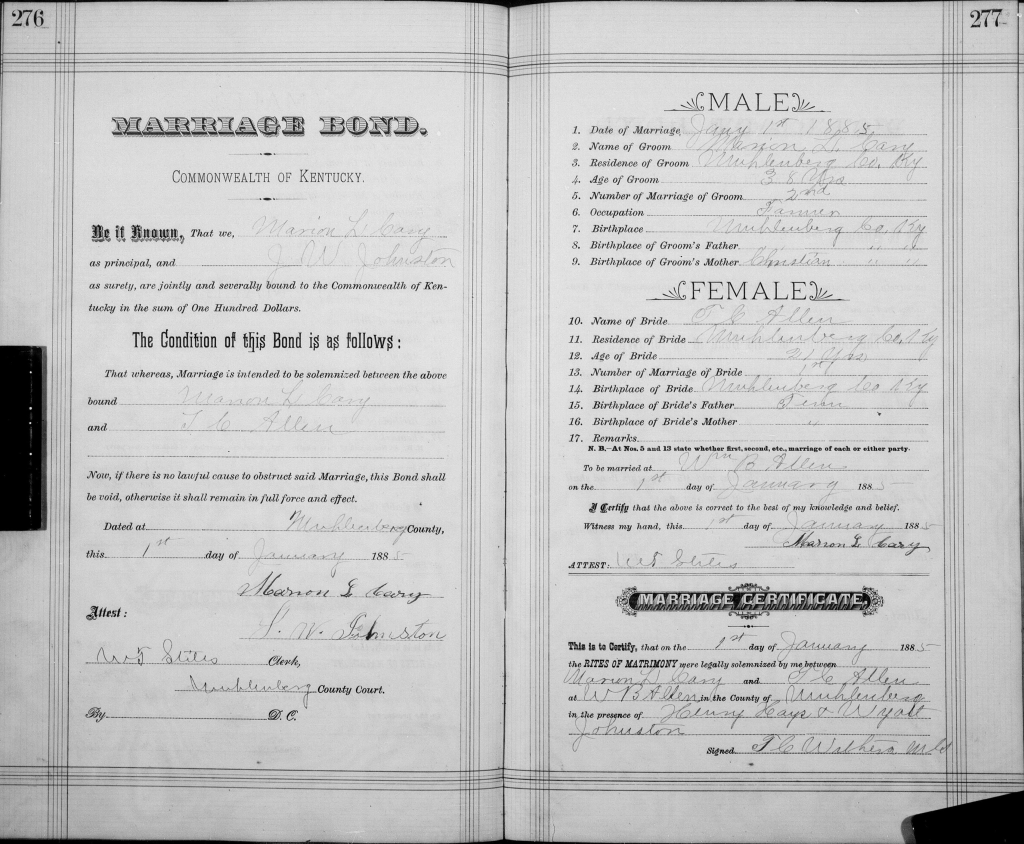 276
MARRIAGE BOND.
COMMONWEALTH OF KENTUCKY.
Be it Known, That we, Marion L Cary
as principal, and J W Johnston
as surety, are jointly and severally bound to the Commonwealth of Ken-
tucky in the sum of One Hundred Dollars.
The Condition of this Bond is as follows:
That whereas, Marriage is intended to be solemnized between the above
bound Marion L Cary
and T C Allen
Now, if there is no lawful cause to obstruct said Marriage, this Bond shall
be void, otherwise it shall remain in full force and effect.
Dated at Muhlenberg County,
this 1st day of January 1885
Marion L Cary
Attest:
J. W. Johnston
W T Stiles Clerk,
Muhlenberg County Court.
By D. C.
277
MALE
1. Date of Marriage Jany 1st 1885
2. Name of Groom Marion L. Cary
3. Residence of Groom Muhlenberg Co, Ky
4. Age of Groom 38 Yrs
5. Number of Marriage of Groom 2nd
6. Occupation Farmer
7. Birthplace Muhlenberg Co, Ky
8. Birthplace of Groom's Father " " "
9. Birthplace of Groom's Mother Christian " "
FEMALE
10. Name of Bride T C Allen
11. Residence of Bride Muhlenberg Co, Ky
12. Age of Bride 21 Yrs
13. Number of Marriage of Bride 1st
14. Birthplace of Bride Muhlenberg Co Ky
15. Birthplace of Bride's Father Tenn
16. Birthplace of Bride's Mother "
17. Remarks
N. B.—At Nos. 5 and 13 state whether first, second, etc., marriage of each or either party.
To be married at Wm B Allens
on the 1st day of January 1885
I Certify that the above is correct to the best of my knowledge and belief.
Witness my hand, this 1st day of January 1885
Marion L. Cary
ATTEST: W T Stiles
MARRIAGE CERTIFICATE.
This is to Certify, that on the 1st day of January 1885
the RITES OF MATRIMONY were legally solemnized by me between
Marion L. Cary and T C Allen
at W B Allen in the County of Muhlenberg
in the presence of Henry Hays & Wyatt
Johnston
Signed T C Withers